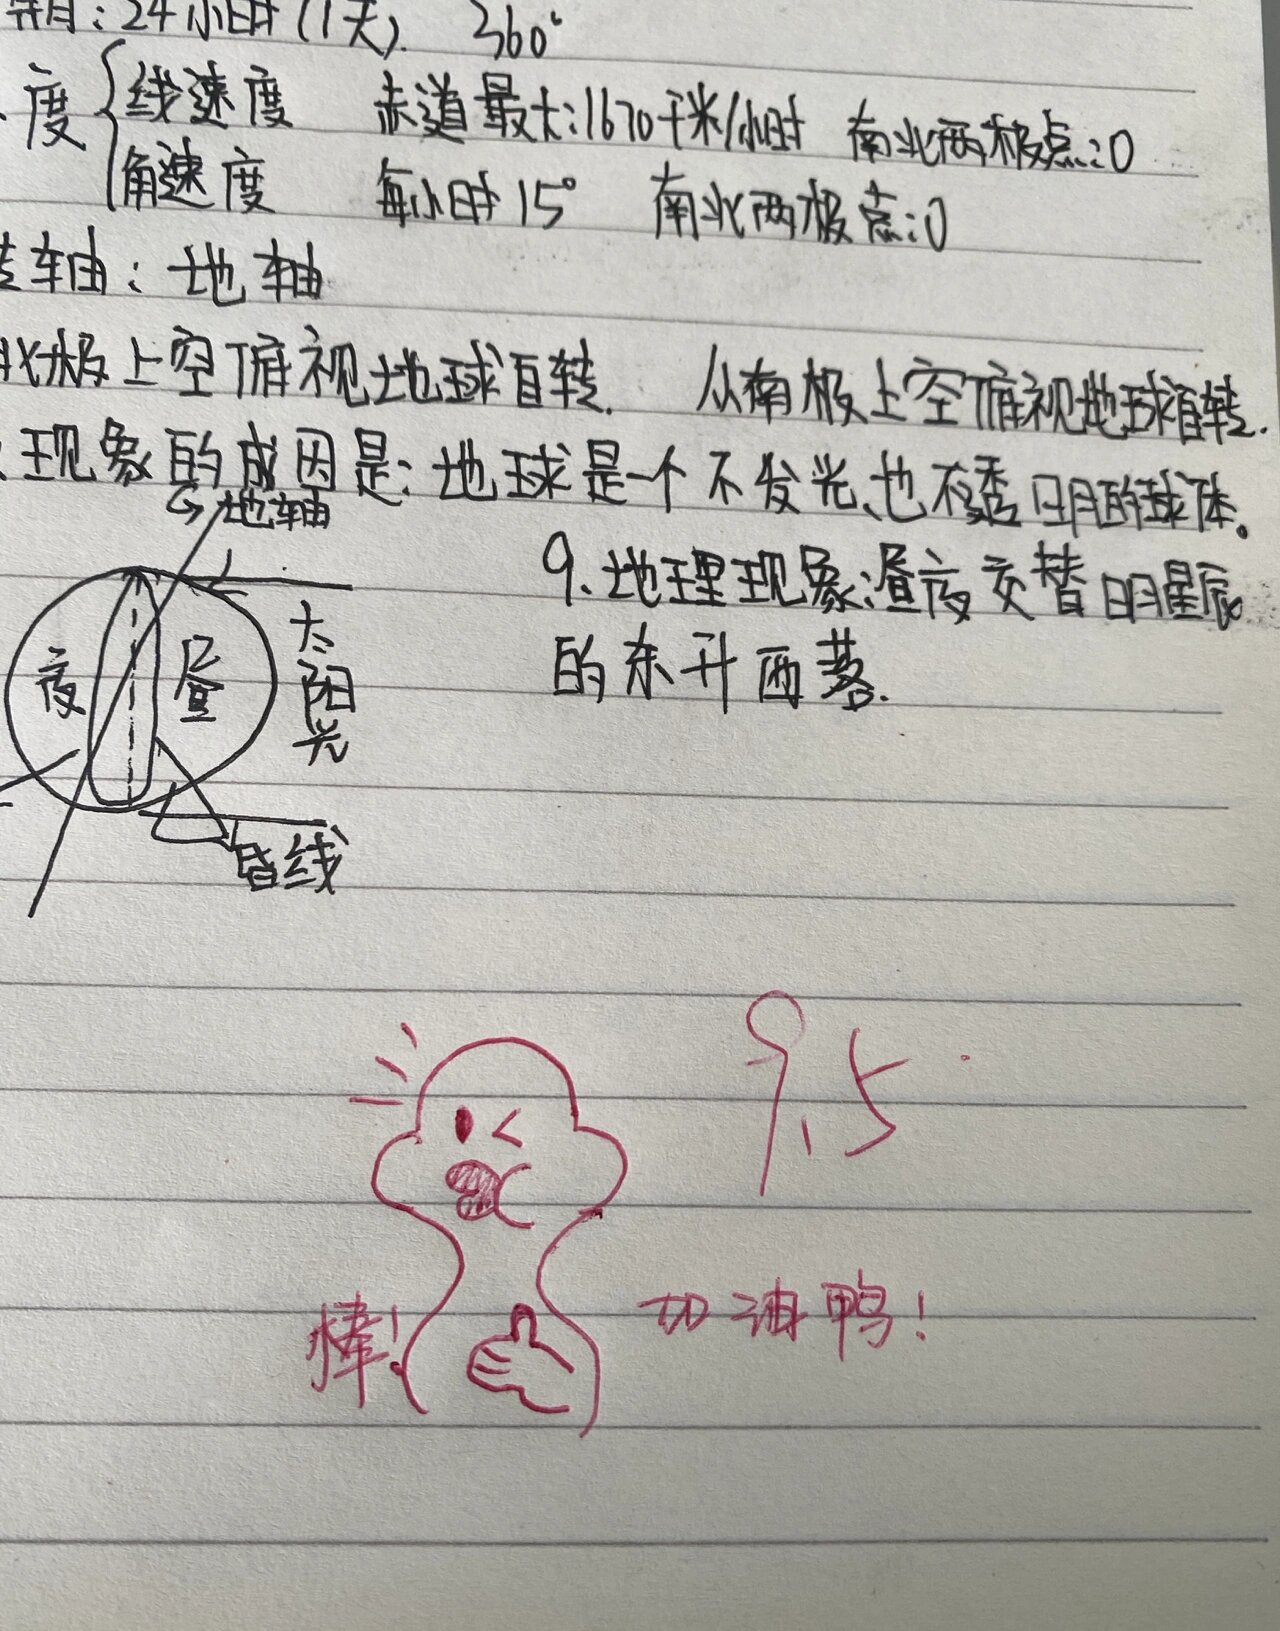 期:24小时(1天). 360°
度 线速度 赤道最大:1670千米/小时 南北两极点:0
角速度 每小时15° 南北两极点:0
转轴:地轴
北极上空俯视地球自转. 从南极上空俯视地球自转.
现象的成因是:地球是一个不发光、也不透明的球体。
地轴
9.地理现象:昼夜交替 日月星辰
的东升西落.
夜 昼
太阳光
昏线
9.5
棒!
加油鸭!